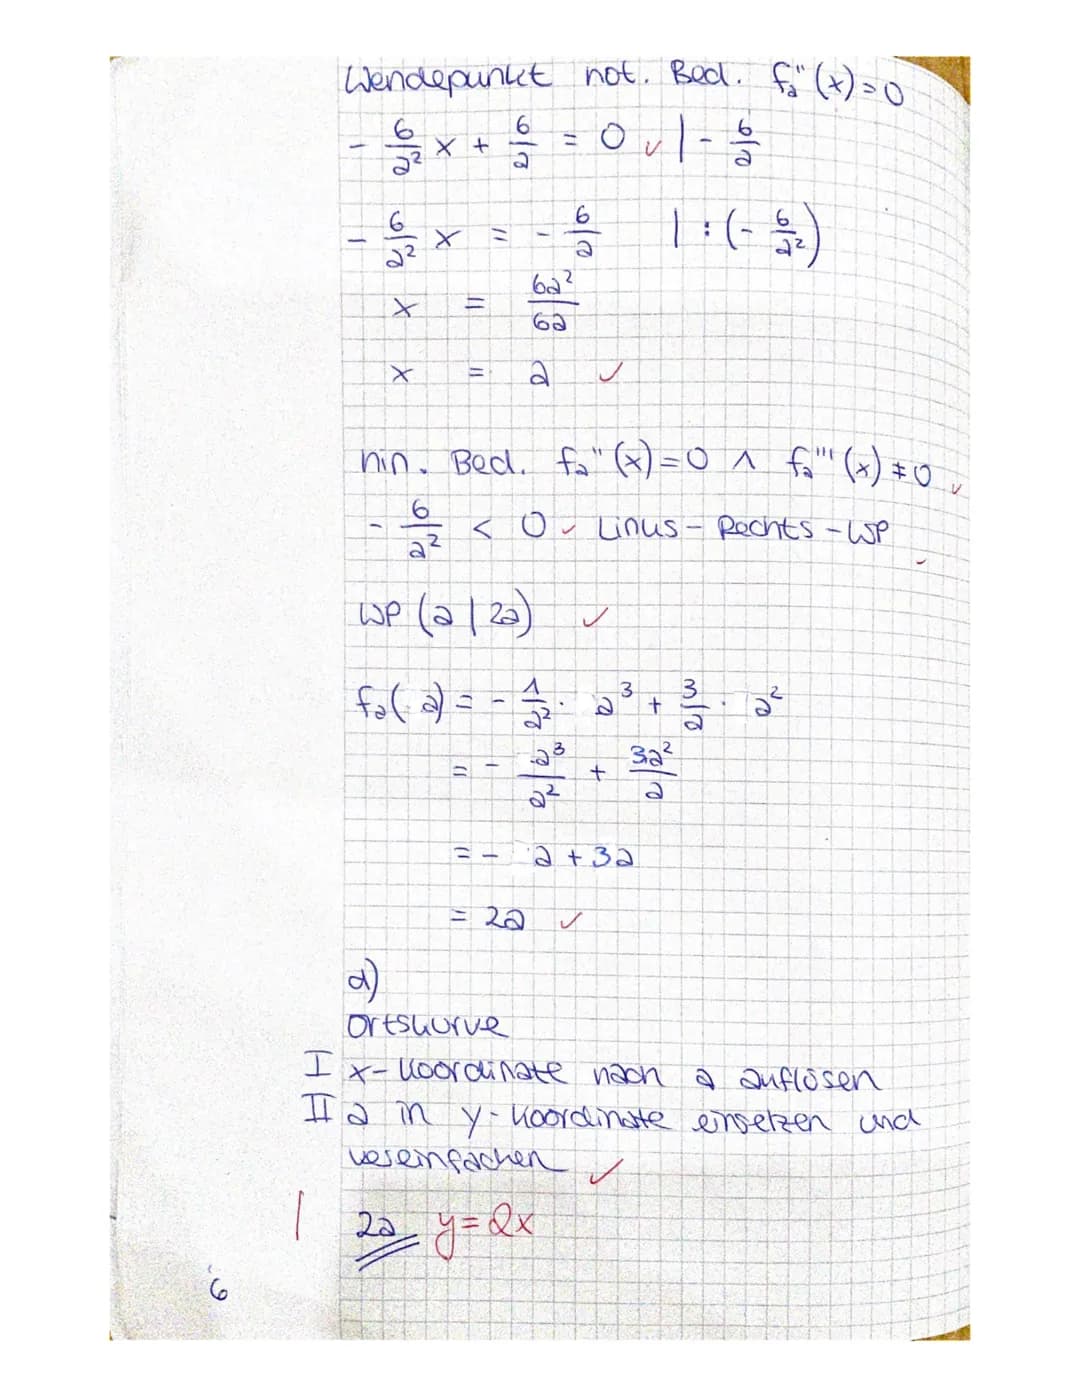 Wendepunkt not. Bed. fₐ"(x)=0
- 6/a² x + 6/a = 0 ✓ | - 6/a
- 6/a² x = - 6/a | : (- 6/a²)
x = 6a²/6a
x = a ✓
hin. Bed. fₐ"(x)=0 ∧ fₐ'''(x) ≠ 0 ✓
- 6/a² < 0 ✓ Links - Rechts - WP ✓
WP (a | 2a) ✓
fₐ(a) = - 1/a² · a³ + 3/a · a²
= - a³/a² + 3a²/a
= - a + 3a
= 2a ✓
d)
Ortskurve
I x-Koordinate nach a auflösen
II a in y-Koordinate einsetzen und
vereinfachen ✓
| 2a y=2x
6